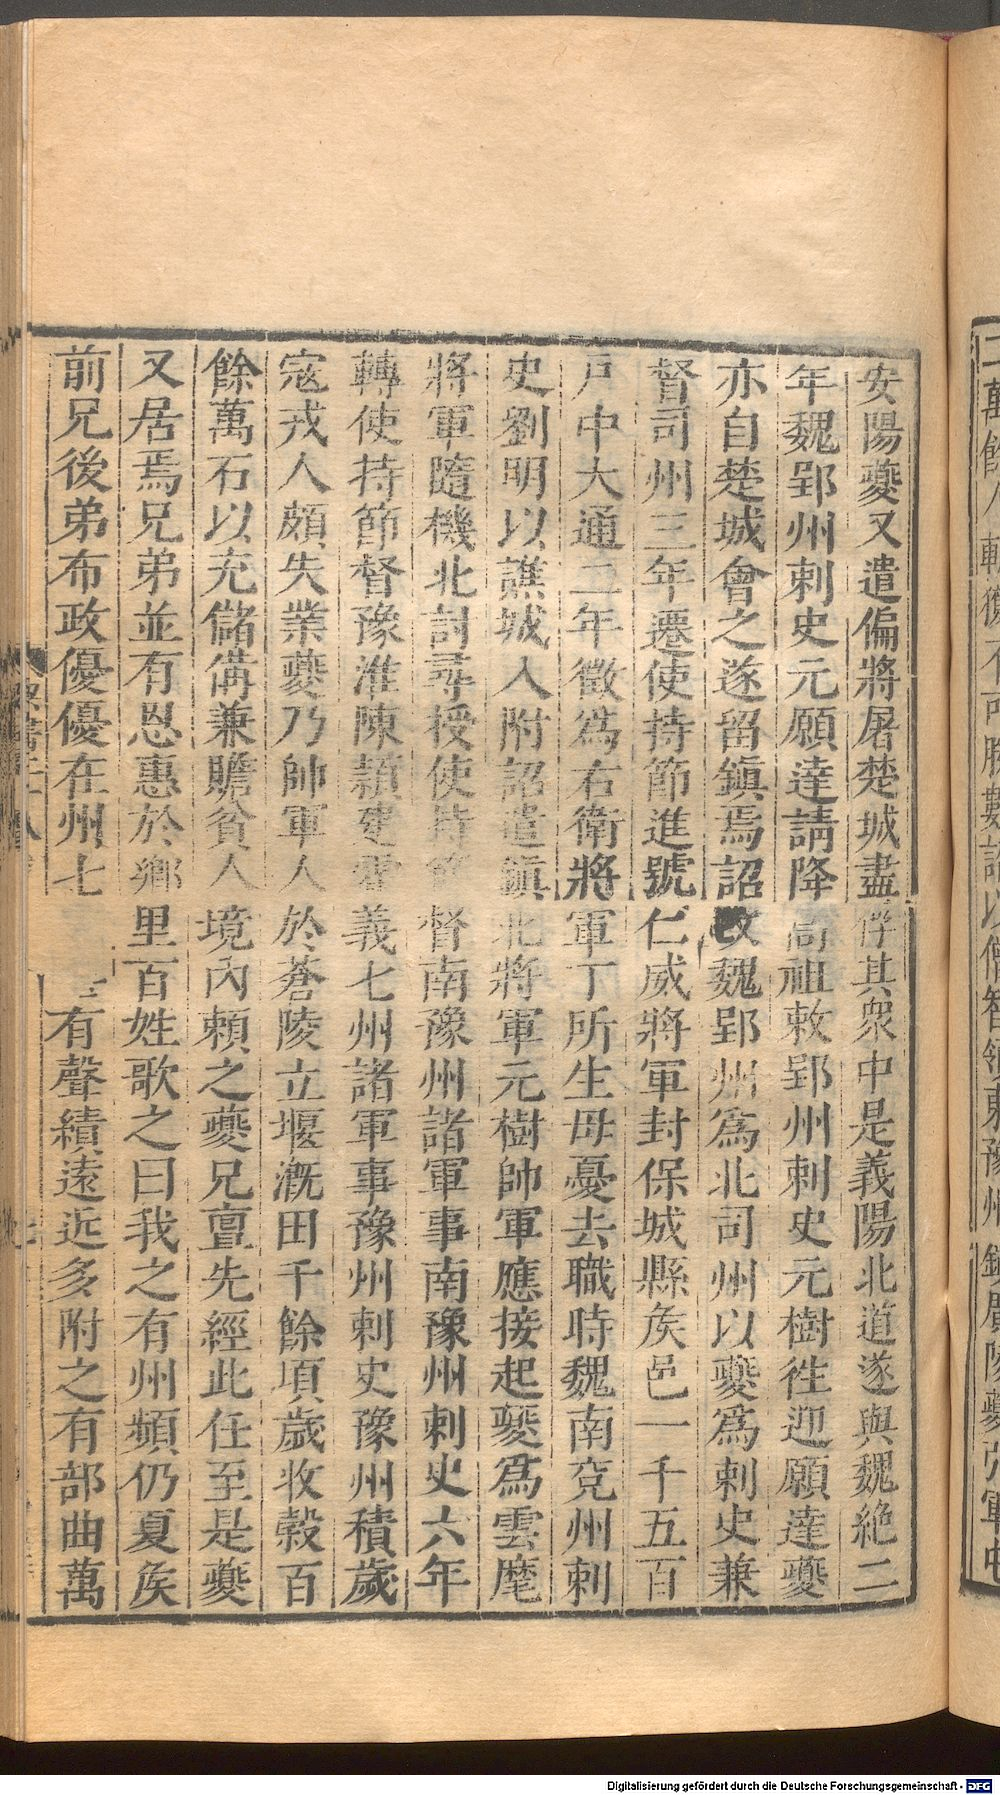 安陽夔又遣偏將屠楚城盡俘其衆中是義陽北道遂與魏絶二
年魏郢州刺史元願達請降高祖敕郢州刺史元樹徃迎願達夔
亦自楚城會之遂留鎮焉詔改魏郢州爲北司州以夔爲刺史兼
督司州三年遷使持節進號仁威將軍封保城縣矦邑一千五百
戸中大通二年徵爲右衛將軍丁所生母憂去職時魏南兗州刺
史劉明以譙城入附詔遣鎮北將軍元樹帥軍應接起夔爲雲麾
將軍隨機北討尋授使持節督南豫州諸軍事南豫州刺史六年
轉使持節督豫淮陳潁建霍義七州諸軍事豫州刺史豫州積歲
寇戎人頗失業夔乃帥軍人於蒼陵立堰漑田千餘頃歲收穀百
餘萬石以充儲備兼贍貧人境內賴之夔兄亶先經此任至是夔
又居焉兄弟並有恩惠於鄉里百姓歌之曰我之有州頻仍夏矦
前兄後弟布政優優在州七有聲績遠近多附之有部曲萬
二萬餘人
領東豫州鎮廣陵夔
Digitalisierung gefördert durch die Deutsche Forschungsgemeinschaft - DFG